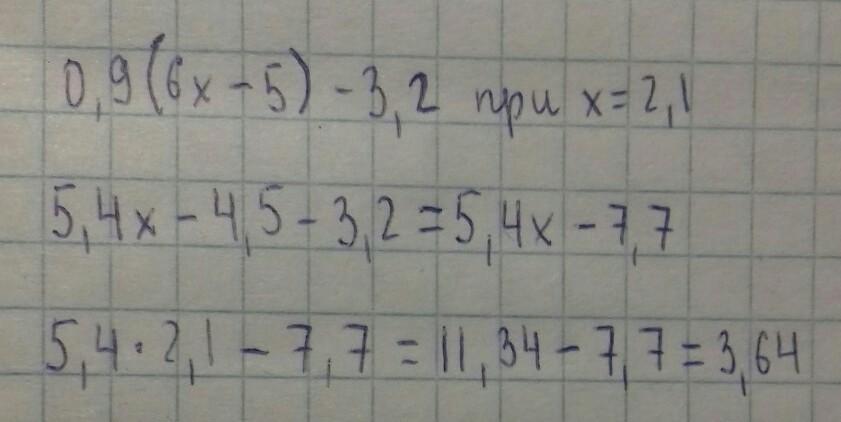 0,9(6x-5)-3,2 при x=2,1
5,4x-4,5-3,2=5,4x-7,7
5,4·2,1-7,7=11,34-7,7=3,64